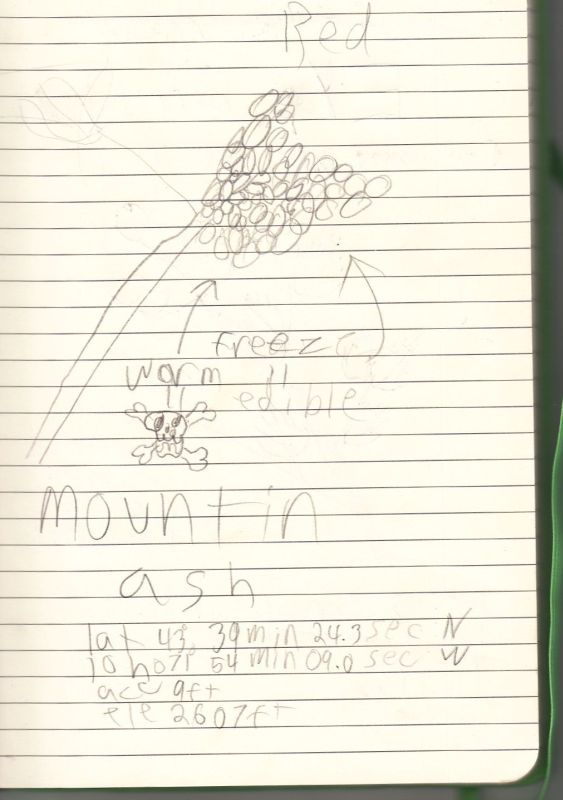 Red
freeze
warm
edible
mountin
ash
lat 43° 39min 24.3 sec N
lon 071 54 min 09.0 sec W
acc 9ft
ele 2607ft